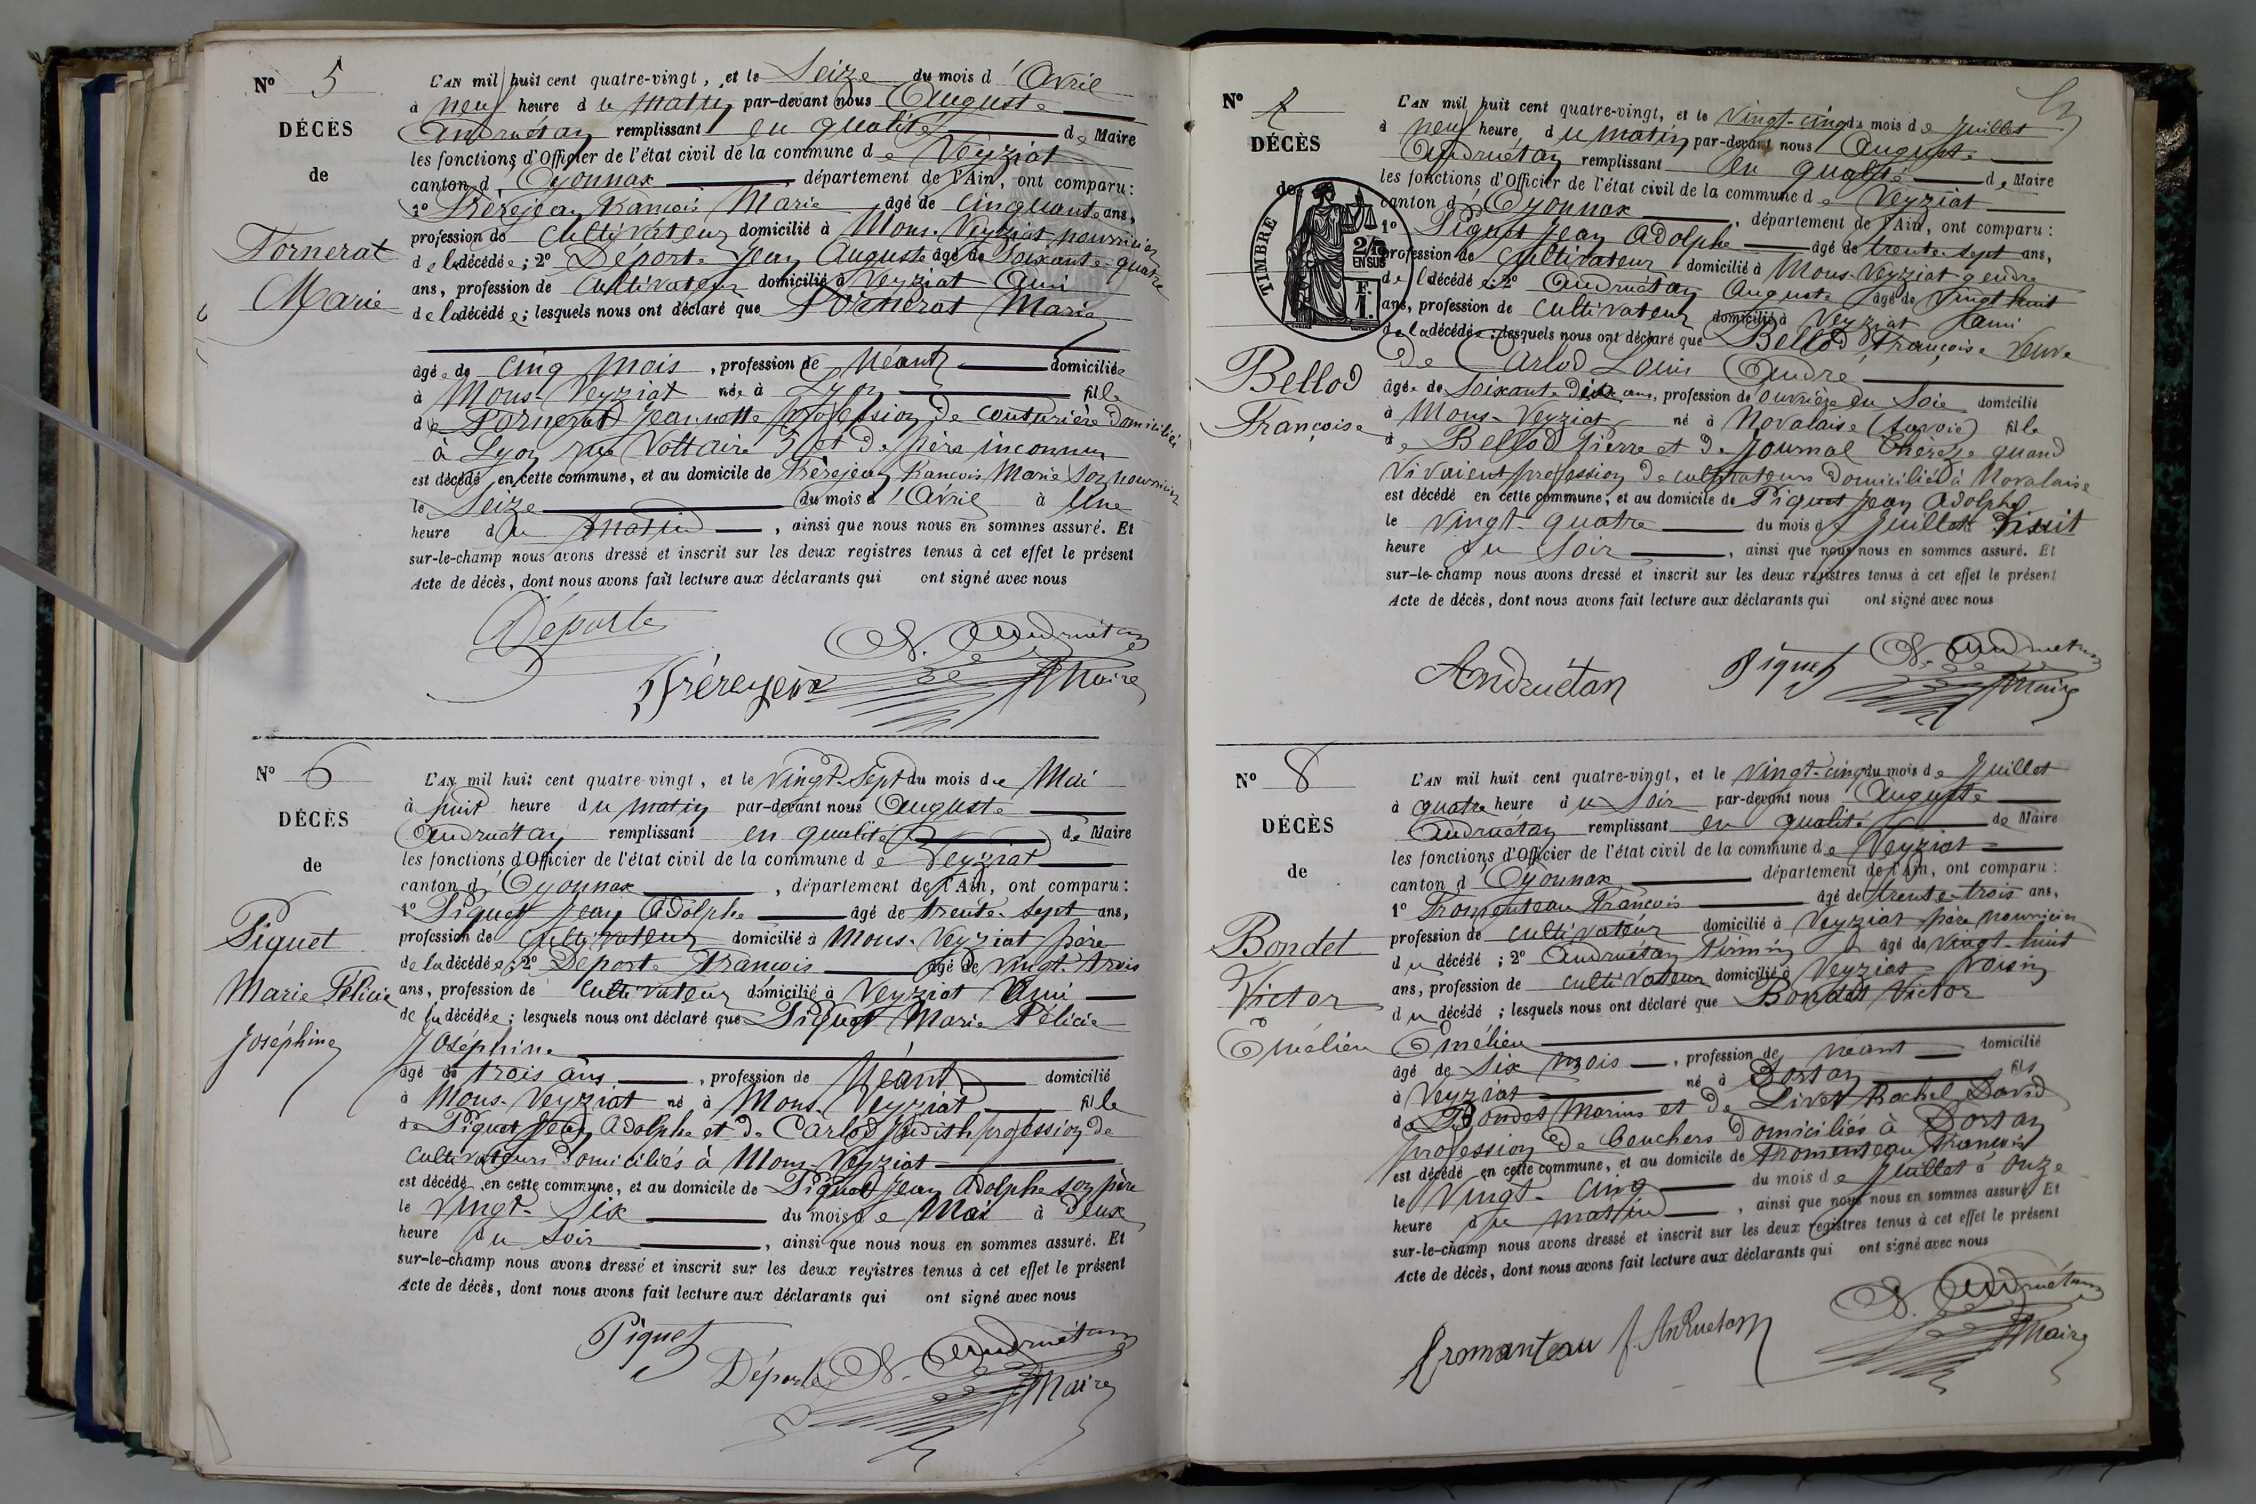 Nº 5
DÉCÈS
de
Fornerat
Marie
L'AN mil huit cent quatre-vingt, et le Seize du mois d'Avril
à neuf heure du matin par-devant nous Auguste
Andruétan remplissant en qualité de Maire
les fonctions d'Officier de l'état civil de la commune de Veyziat
canton d'Oyonnax département de l'Ain, ont comparu :
1º Frérejean François Marie âgé de cinquante ans,
profession de cultivateur domicilié à Mons-Veyziat nourricier
de la décédée ; 2º Déporte Jean Auguste âgé de soixante-quatre
ans, profession de cultivateur domicilié à Veyziat Ami
de la décédée ; lesquels nous ont déclaré que Fornerat Marie
âgée de cinq mois, profession de Néant domiciliée
à Mons-Veyziat née à Lyon fille
de Fornerat Jeannette profession de couturière domiciliée
à Lyon rue Voltaire 5 et de père inconnu
est décédé en cette commune, et au domicile de Frérejean François Marie son nourricier
le Seize du mois d'Avril à Une
heure du matin, ainsi que nous nous en sommes assuré. Et
sur-le-champ nous avons dressé et inscrit sur les deux registres tenus à cet effet le présent
Acte de décès, dont nous avons fait lecture aux déclarants qui ont signé avec nous
Déporte
Frérejean
A. Andruétan
Maire
Nº 6
DÉCÈS
de
Piquet
Marie Félicie
Joséphine
L'AN mil huit cent quatre-vingt, et le vingt-sept du mois de Mai
à huit heure du matin par-devant nous Auguste
Andruétan remplissant en qualité de Maire
les fonctions d'Officier de l'état civil de la commune de Veyziat
canton d'Oyonnax, département de l'Ain, ont comparu :
1º Piquet Jean Adolphe âgé de trente-sept ans,
profession de cultivateur domicilié à Mons-Veyziat père
de la décédée ; 2º Déporte François âgé de vingt-trois
ans, profession de cultivateur domicilié à Veyziat Ami
de la décédée ; lesquels nous ont déclaré que Piquet Marie Félicie
Joséphine
âgé de trois ans, profession de Néant domicilié
à Mons-Veyziat né à Mons-Veyziat fille
de Piquet Jean Adolphe et de Carlod Judith profession de
cultivateurs domiciliés à Mons-Veyziat
est décédé en cette commune, et au domicile de Piquet Jean Adolphe son père
le vingt-six du mois de Mai à deux
heure du soir, ainsi que nous nous en sommes assuré. Et
sur-le-champ nous avons dressé et inscrit sur les deux registres tenus à cet effet le présent
Acte de décès, dont nous avons fait lecture aux déclarants qui ont signé avec nous
Piquet
Déporte
A. Andruétan
Maire
Nº 7
DÉCÈS
de
TIMBRE
2/10
EN SUS
F.
1.
Bellod
Françoise
L'AN mil huit cent quatre-vingt, et le vingt-cinq du mois de Juillet
à neuf heure du matin par-devant nous Auguste
Andruétan remplissant en qualité de Maire
les fonctions d'Officier de l'état civil de la commune de Veyziat
canton d'Oyonnax, département de l'Ain, ont comparu :
1º Piquet Jean Adolphe âgé de trente-sept ans,
profession de cultivateur domicilié à Mons-Veyziat gendre
de la décédée ; 2º Andruétan Auguste âgé de vingt-huit
ans, profession de cultivateur domicilié à Veyziat Ami
de la décédée ; lesquels nous ont déclaré que Bellod Françoise veuve
de Carlod Louis André
âgée de soixante-dix ans, profession de ouvrière en soie domicilié
à Mons-Veyziat né à Novalaise (Savoie) fille
de Bellod Pierre et de Journal Thérèse quand
vivaient profession de cultivateurs domiciliés à Novalaise
est décédé en cette commune, et au domicile de Piquet Jean Adolphe
le vingt-quatre du mois de Juillet à huit
heure du soir, ainsi que nous nous en sommes assuré. Et
sur-le-champ nous avons dressé et inscrit sur les deux registres tenus à cet effet le présent
Acte de décès, dont nous avons fait lecture aux déclarants qui ont signé avec nous
Andruétan
Piquet
A. Andruétan
Maire
Nº 8
DÉCÈS
de
Bondet
Victor
Emélien
L'AN mil huit cent quatre-vingt, et le vingt-cinq du mois de Juillet
à quatre heure du soir par-devant nous Auguste
Andruétan remplissant en qualité de Maire
les fonctions d'Officier de l'état civil de la commune de Veyziat
canton d'Oyonnax département de l'Ain, ont comparu :
1º Fromenteau François âgé de trente-trois ans,
profession de cultivateur domicilié à Veyziat père nourricier
du décédé ; 2º Andruétan Firmin âgé de vingt-huit
ans, profession de cultivateur domicilié à Veyziat voisin
du décédé ; lesquels nous ont déclaré que Bondet Victor
Emélien
âgé de six mois, profession de néant domicilié
à Veyziat né à Dortan fils
de Bondet Marius et de Livet Rachel David
profession de bouchers domiciliés à Dortan
est décédé en cette commune, et au domicile de Fromenteau François
le vingt-cinq du mois de Juillet à onze
heure du matin, ainsi que nous nous en sommes assuré. Et
sur-le-champ nous avons dressé et inscrit sur les deux registres tenus à cet effet le présent
Acte de décès, dont nous avons fait lecture aux déclarants qui ont signé avec nous
fromanteau
f. Andruetan
A. Andruétan
Maire